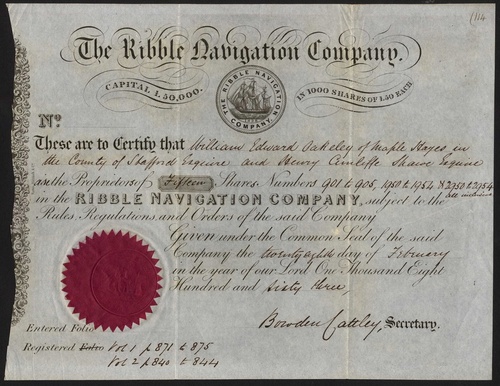 114
The Ribble Navigation Company.
CAPITAL £50,000.
THE RIBBLE NAVIGATION COMPANY, PRESTON
IN 1000 SHARES OF £50 EACH
No.
These are to Certify that William Edward Oakeley of Maple Hayes in
the County of Stafford Esquire and Henry Cunliffe Shawe Esquire
are the Proprietors of Fifteen Shares Numbers 901 to 905, 1950 to 1954 & 2950 to 2954
all inclusive
in the RIBBLE NAVIGATION COMPANY, subject to the
Rules Regulations and Orders of the said Company
Given under the Common Seal of the said
Company the twenty eighth day of February
in the year of our Lord One Thousand Eight
Hundred and sixty three,
Bowden Cattley, Secretary.
Entered Folio
Registered Folio Vol 1 p 871 to 875
Vol 2 p 840 to 844